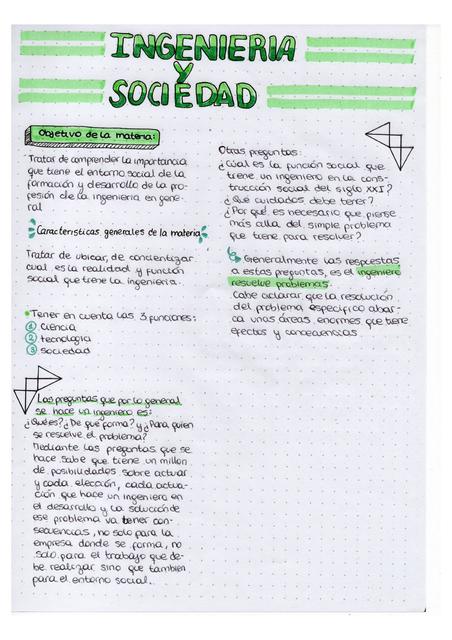 INGENIERIA
Y
SOCIEDAD
Objetivo de la materia:
Tratar de comprender la importancia
que tiene el entorno social de la
formación y desarrollo de la pro-
fesión de la ingeniería en gene-
ral
Características generales de la materia
Tratar de ubicar, de concientizar
cual es la realidad y función
social que tiene la ingeniería.
Tener en cuenta las 3 funciones:
1 ciencia
2 tecnología
3 sociedad
Las preguntas que por lo general
se hace un ingeniero es:
¿Qué es? ¿De que forma? y ¿Para quien
se resuelve el problema?
Mediante las preguntas que se
hace sabe que tiene un millon
de posibilidades sobre actuar
y cada elección, cada actua-
ción que hace un ingeniero en
el desarrollo y la solución de
ese problema va tener con-
secuencias, no solo para la
empresa donde se forma, no
solo para el trabajo que de-
be realizar sino que tambien
para el entorno social.
Otras preguntas:
¿Cuál es la función social que
tiene un ingeniero en la cons-
trucción social del siglo XXI?
¿Qué cuidados debe tener?
¿Por qué es necesario que piense
más alla del simple problema
que tiene para resolver?
Generalmente las respuestas
a estas preguntas, es el ingeniero
resuelve problemas.
Cabe aclarar que la resolución
del problema específico abar-
ca unas áreas enormes que tiene
efectos y consecuencias.